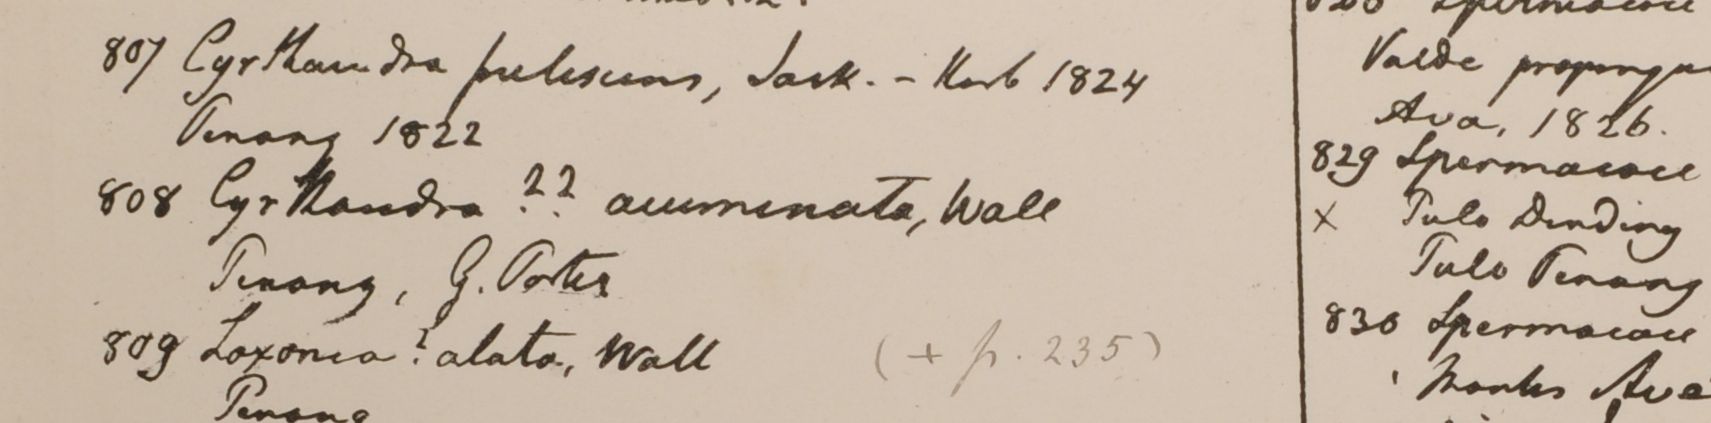 807 Cyrthandra pubescens, Jack. - Herb 1824
Penang 1822
808 Cyrthandra ?? acuminata, Wall
Penang, G. Porter
809 Loxonia ? alata, Wall (+ p. 235)
Penang
Spermacoce
Valde propinqu
Ava, 1826.
829 Spermacoce
x Pulo Dinding
Pulo Penang
830 Spermacoce
Montes Ava